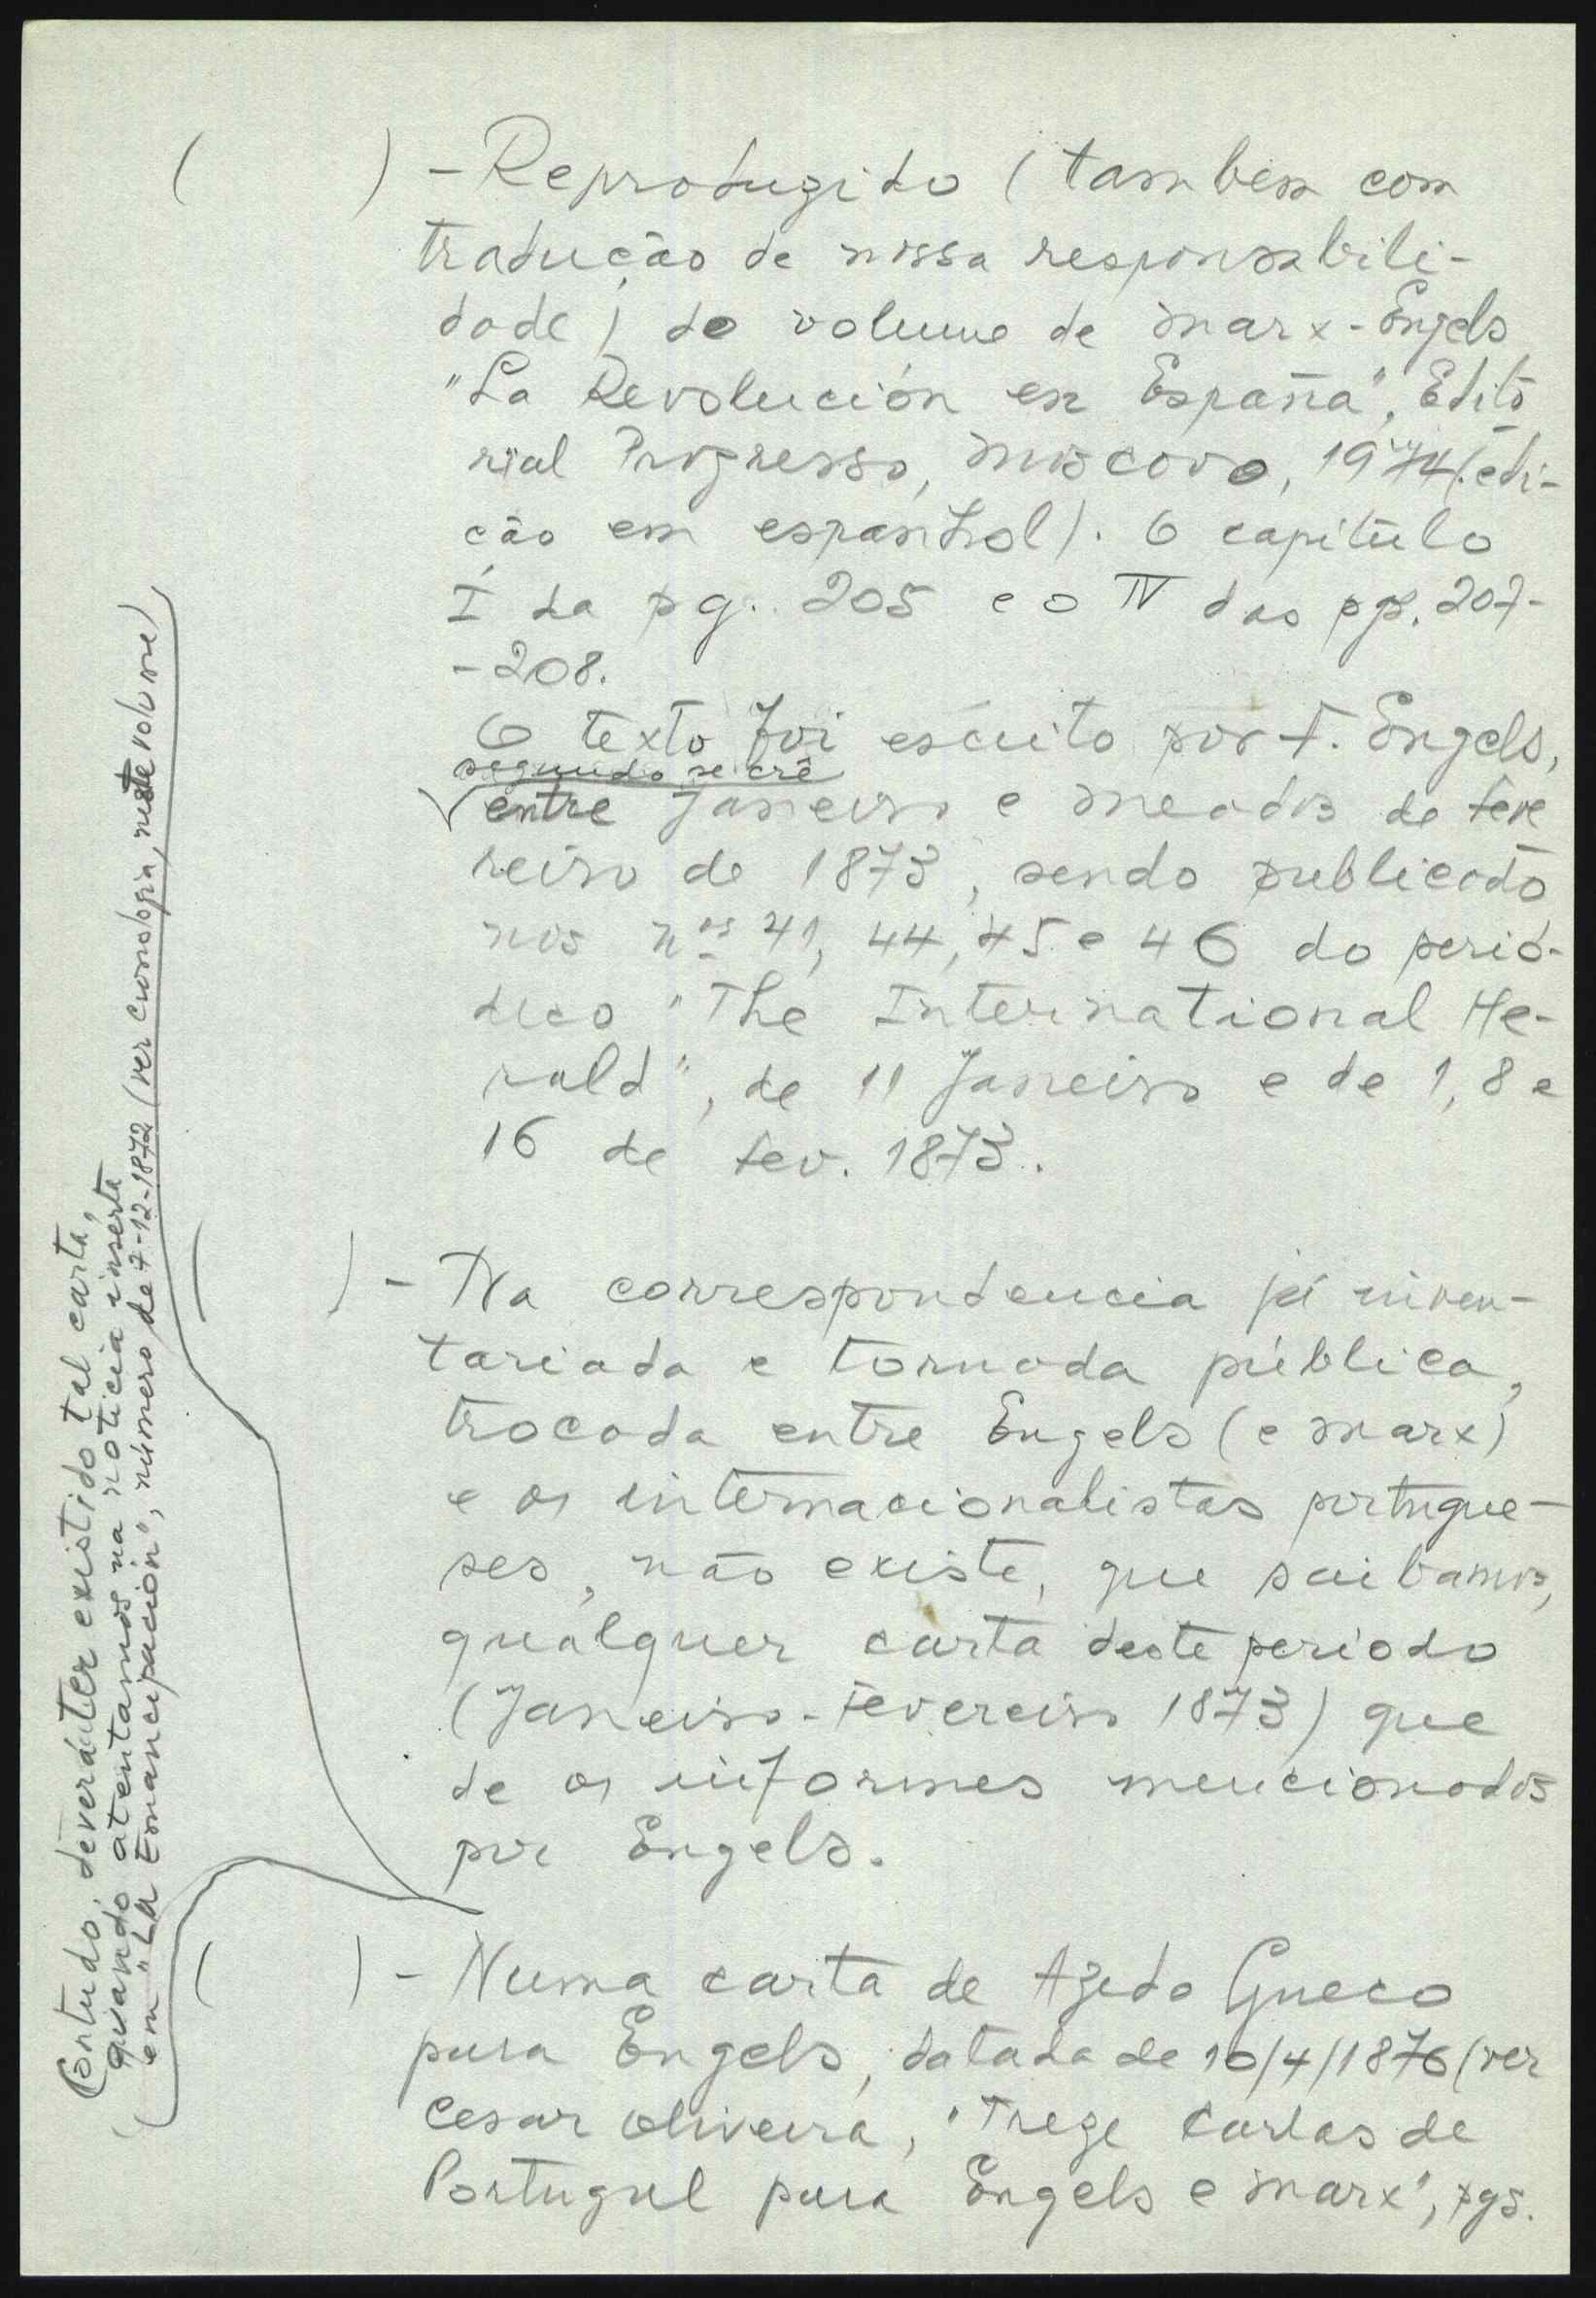 (        ) - Reproduzido (tambem com
tradução de nossa responsabili-
dade) do volume de Marx-Engels
"La Revolución en España", Edito
rial Progresso, Moscovo, 1974 (edi-
ção em espanhol). O capítulo
I da pg. 205 e o IV das pgs. 207-
-208.
O texto foi escrito por F. Engels,
segundo se crê
entre Janeiro e meados de Feve
reiro de 1873, sendo publicado
nos nos 41, 44, 45 e 46 do perió-
dico "The International He-
rald", de 11 Janeiro e de 1, 8 e
16 de Fev. 1873.
(        ) - Na correspondencia já inven-
tariada e tornada pública,
trocada entre Engels (e Marx)
e os internacionalistas portugue-
ses, não existe, que saibamos,
qualquer carta deste periodo
(Janeiro-Fevereiro 1873) que
dê os informes mencionados
por Engels.
Contudo, deverá ter existido tal carta,
quando atentamos na noticia inserta
em "La Emancipación", número de 7-12-1872 (ver cronologia, neste volume)
(        ) - Numa carta de Azedo Gneco
para Engels, datada de 10/4/1876 (ver
Cesar Oliveira, "Treze Cartas de
Portugal para Engels e Marx", pgs.